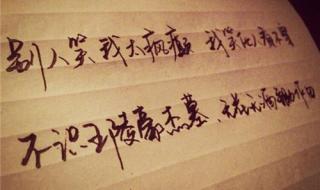 别人笑我太疯癫 我笑他人看不穿
不识五陵豪杰墓、酒锄作田